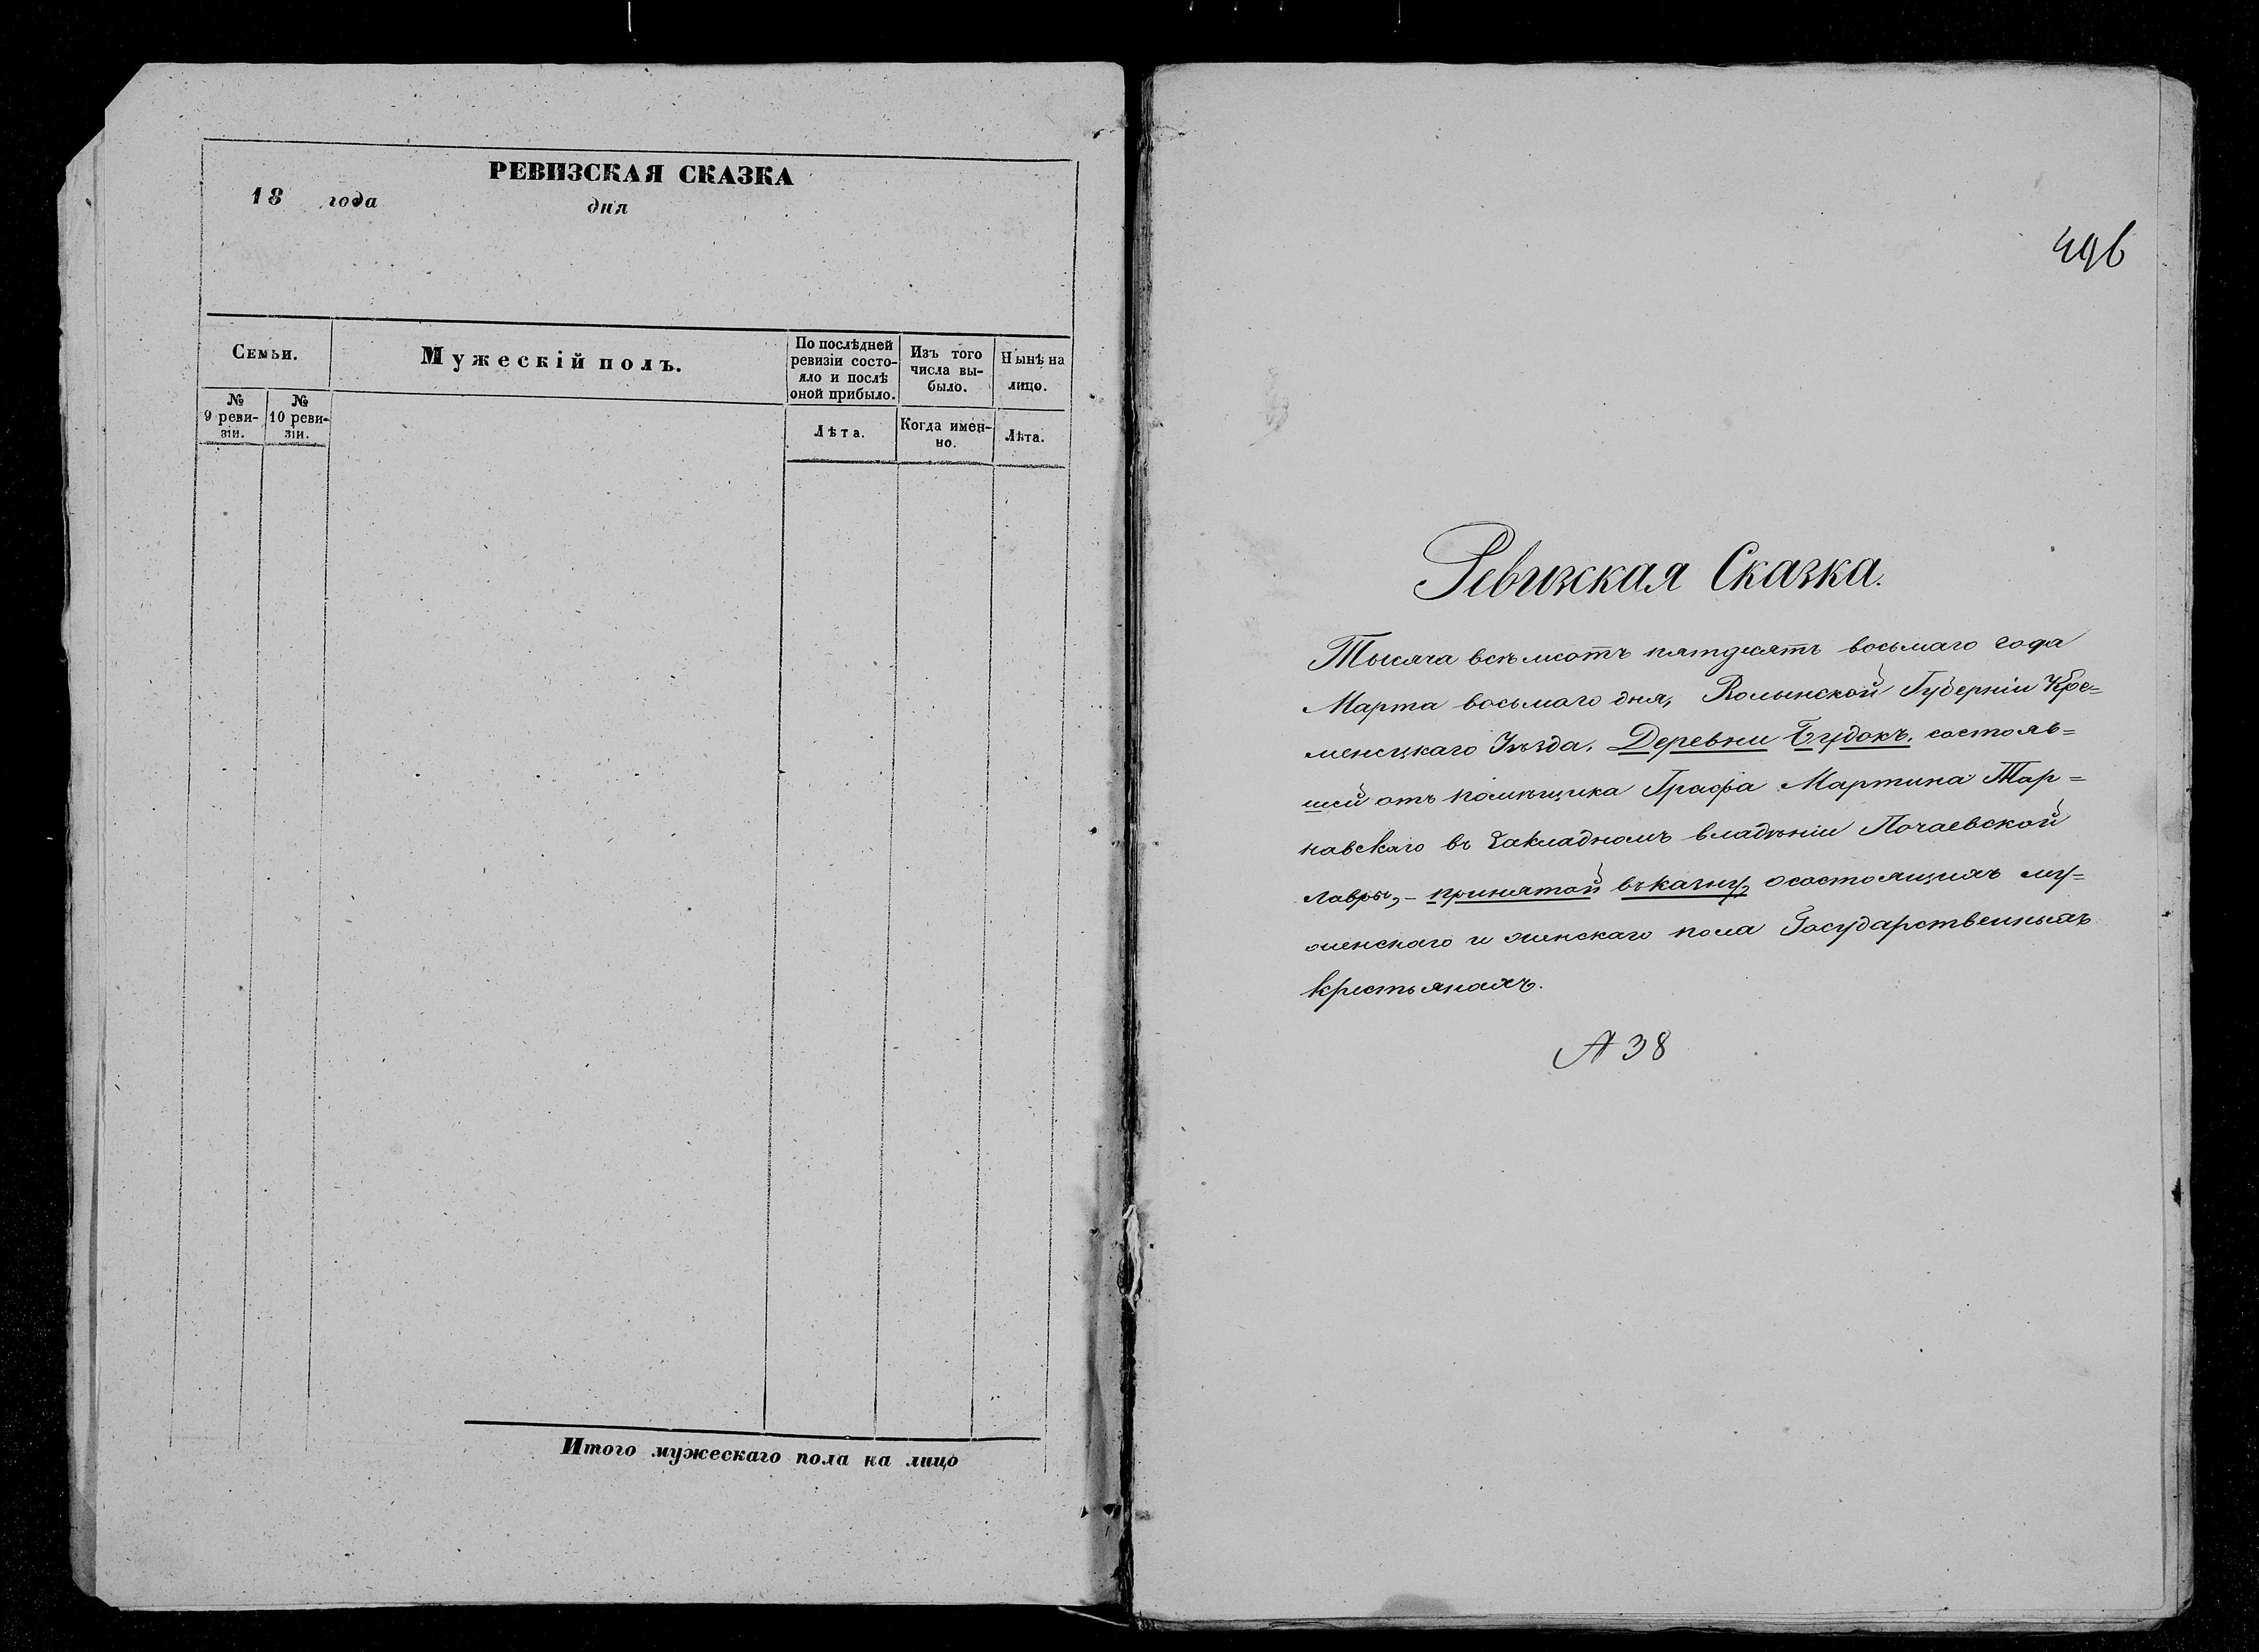 РЕВИЗСКАЯ СКАЗКА
18 года дня
Семьи.
Мужескій полъ.
По послѣдней
ревизіи состо-
яло и послѣ
оной прибыло.
Изъ того
числа вы-
было.
Нынѣ на
лицо.
№
9 реви-
зіи.
№
10 реви-
зіи.
Лѣта.
Когда имен-
но.
Лѣта.
Итого мужескаго пола на лицо
496
Ревизская Сказка.
Тысяча всѣмсотъ пятдесятъ восьмаго года
Марта восьмаго дня, Волынской Губерніи Кре=
менецкаго Уѣзда, Деревни Будокъ, состояв=
шей отъ помѣщика Графа Мартина Тар=
навскаго въ Закладномъ владѣніи Почаевской
Лавры,– принятой въ казну, о состоящихъ му=
женскаго и женскаго пола Государственныхъ
крестьянахъ.
А 38